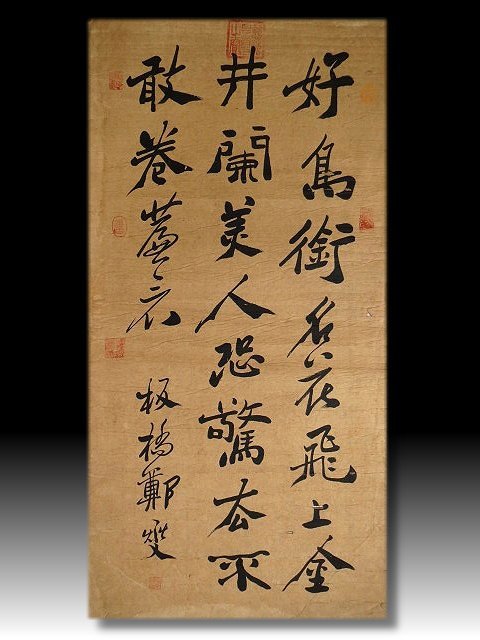 好鳥銜名花飛上金
井闌美人恐驚去不
敢卷簾衣
板橋鄭燮